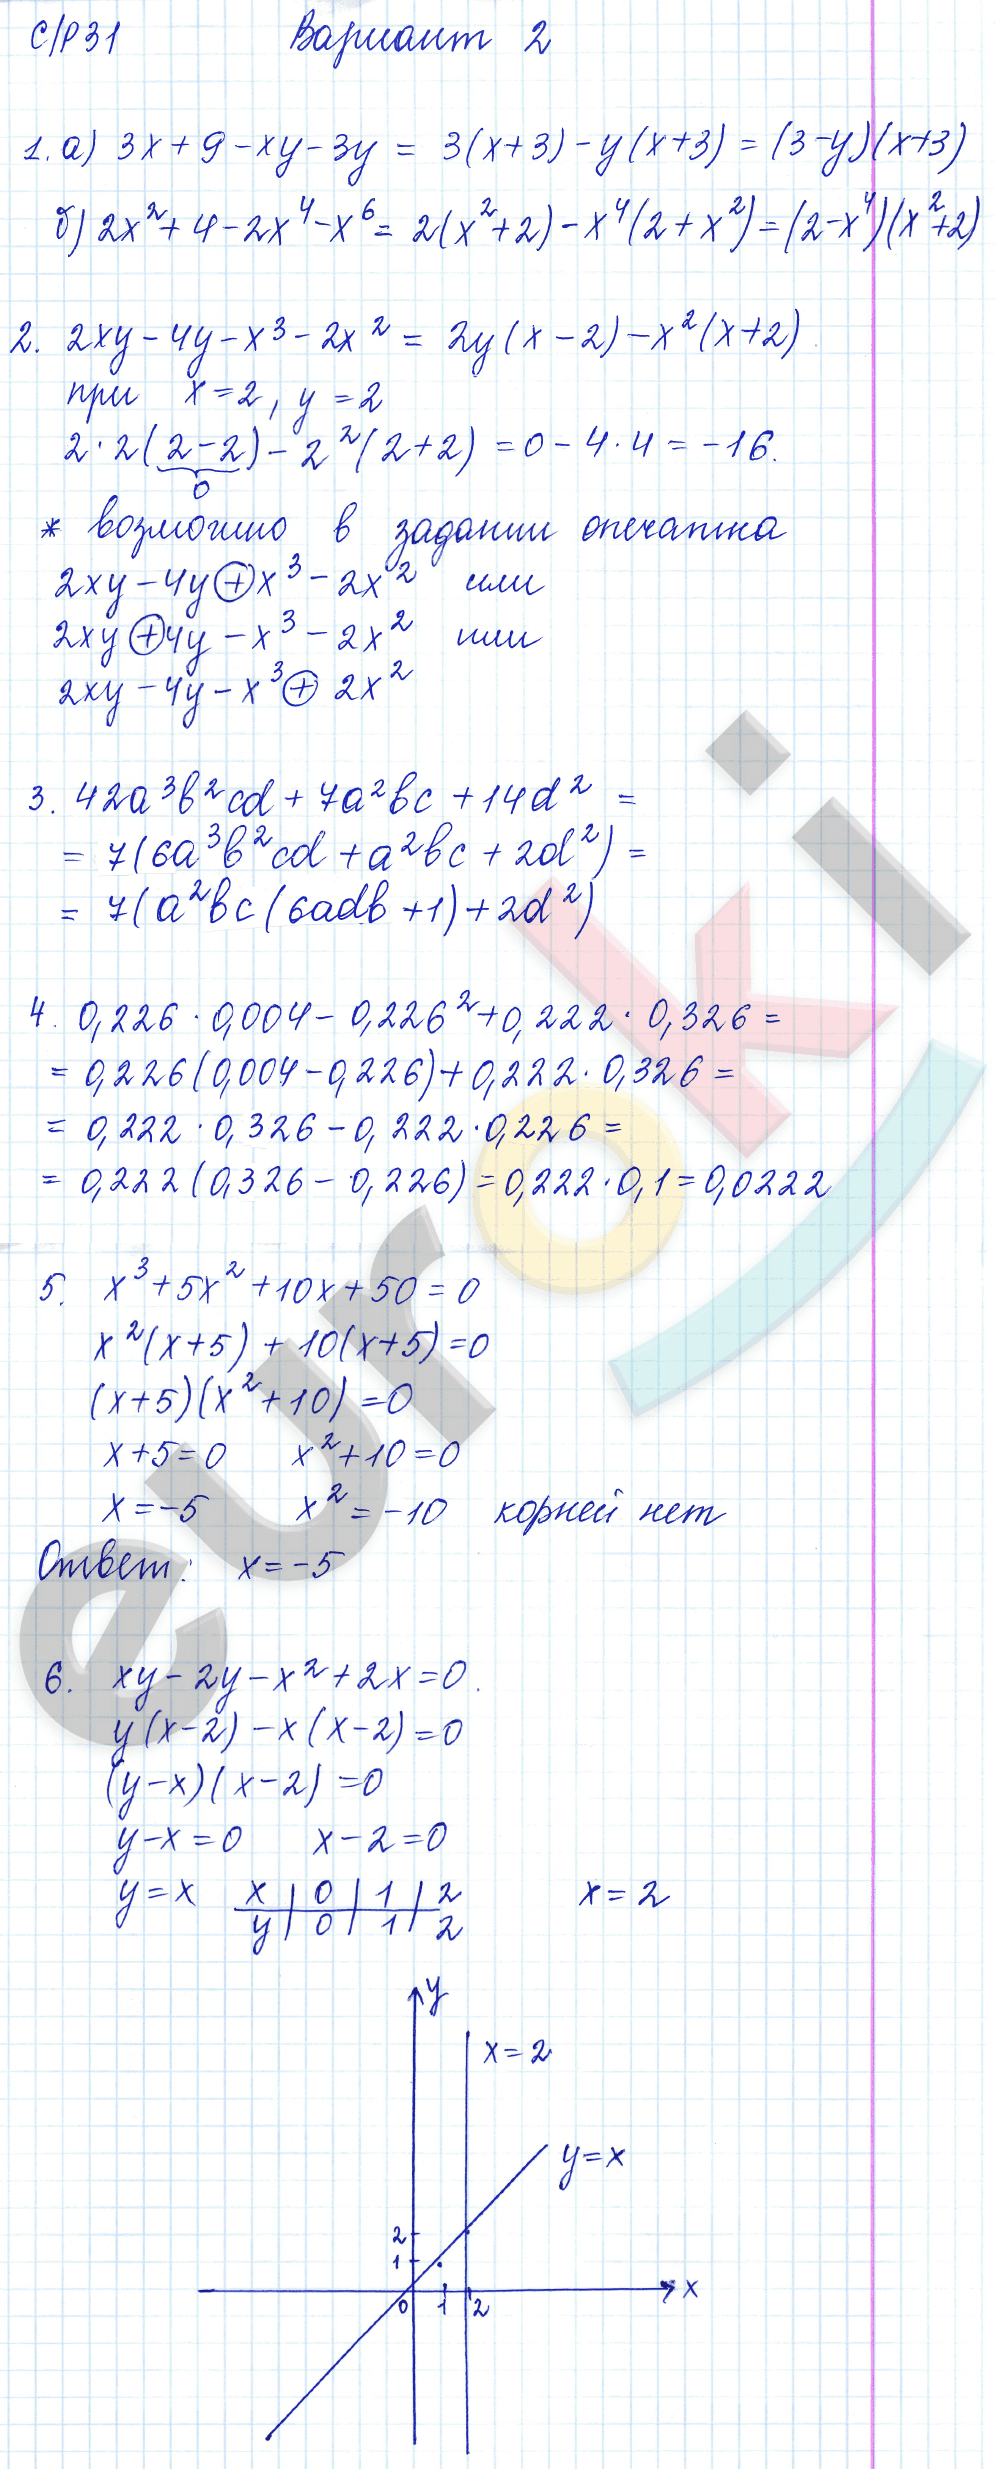 С/Р 31 Вариант 2
1. а) 3x + 9 - xy - 3y = 3(x+3) - y(x+3) = (3-y)(x+3)
б) 2x² + 4 - 2x⁴ - x⁶ = 2(x²+2) - x⁴(2+x²) = (2-x⁴)(x²+2)
2. 2xy - 4y - x³ - 2x² = 2y(x-2) - x²(x+2)
при x=2, y=2
2·2(2-2) - 2²(2+2) = 0 - 4·4 = -16.
0
* возможно в задании опечатка
2xy - 4y ⊕ x³ - 2x² или
2xy ⊕ 4y - x³ - 2x² или
2xy - 4y - x³ ⊕ 2x²
3. 42a³b²cd + 7a²bc + 14d² =
= 7(6a³b²cd + a²bc + 2d²) =
= 7(a²bc(6adb+1) + 2d²)
4. 0,226 · 0,004 - 0,226² + 0,222 · 0,326 =
= 0,226(0,004 - 0,226) + 0,222 · 0,326 =
= 0,222 · 0,326 - 0,222 · 0,226 =
= 0,222(0,326 - 0,226) = 0,222 · 0,1 = 0,0222
5. x³ + 5x² + 10x + 50 = 0
x²(x+5) + 10(x+5) = 0
(x+5)(x²+10) = 0
x+5=0 x²+10=0
x=-5 x²=-10 корней нет
Ответ: x=-5
6. xy - 2y - x² + 2x = 0.
y(x-2) - x(x-2) = 0
(y-x)(x-2) = 0
y-x=0 x-2=0
y=x x | 0 | 1 | 2 x=2
y | 0 | 1 | 2
y
x=2
y=x
2
1
0 1 2 x
euroki